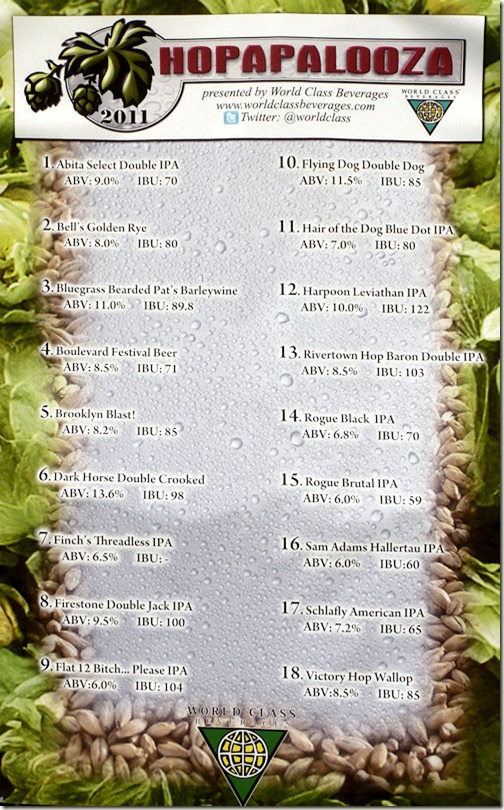 HOPAPALOOZA
2011
presented by World Class Beverages
www.worldclassbeverages.com
Twitter: @worldclass
WORLD CLASS
BEVERAGES
1. Abita Select Double IPA
ABV: 9.0% IBU: 70
2. Bell's Golden Rye
ABV: 8.0% IBU: 80
3. Bluegrass Bearded Pat's Barleywine
ABV: 11.0% IBU: 89.8
4. Boulevard Festival Beer
ABV: 8.5% IBU: 71
5. Brooklyn Blast!
ABV: 8.2% IBU: 85
6. Dark Horse Double Crooked
ABV: 13.6% IBU: 98
7. Finch's Threadless IPA
ABV: 6.5% IBU: -
8. Firestone Double Jack IPA
ABV: 9.5% IBU: 100
9. Flat 12 Bitch... Please IPA
ABV:6.0% IBU: 104
10. Flying Dog Double Dog
ABV: 11.5% IBU: 85
11. Hair of the Dog Blue Dot IPA
ABV: 7.0% IBU: 80
12. Harpoon Leviathan IPA
ABV: 10.0% IBU: 122
13. Rivertown Hop Baron Double IPA
ABV: 8.5% IBU: 103
14. Rogue Black IPA
ABV: 6.8% IBU: 70
15. Rogue Brutal IPA
ABV: 6.0% IBU: 59
16. Sam Adams Hallertau IPA
ABV: 6.0% IBU:60
17. Schlafly American IPA
ABV: 7.2% IBU: 65
18. Victory Hop Wallop
ABV:8.5% IBU: 85
WORLD CLASS
BEVERAGES